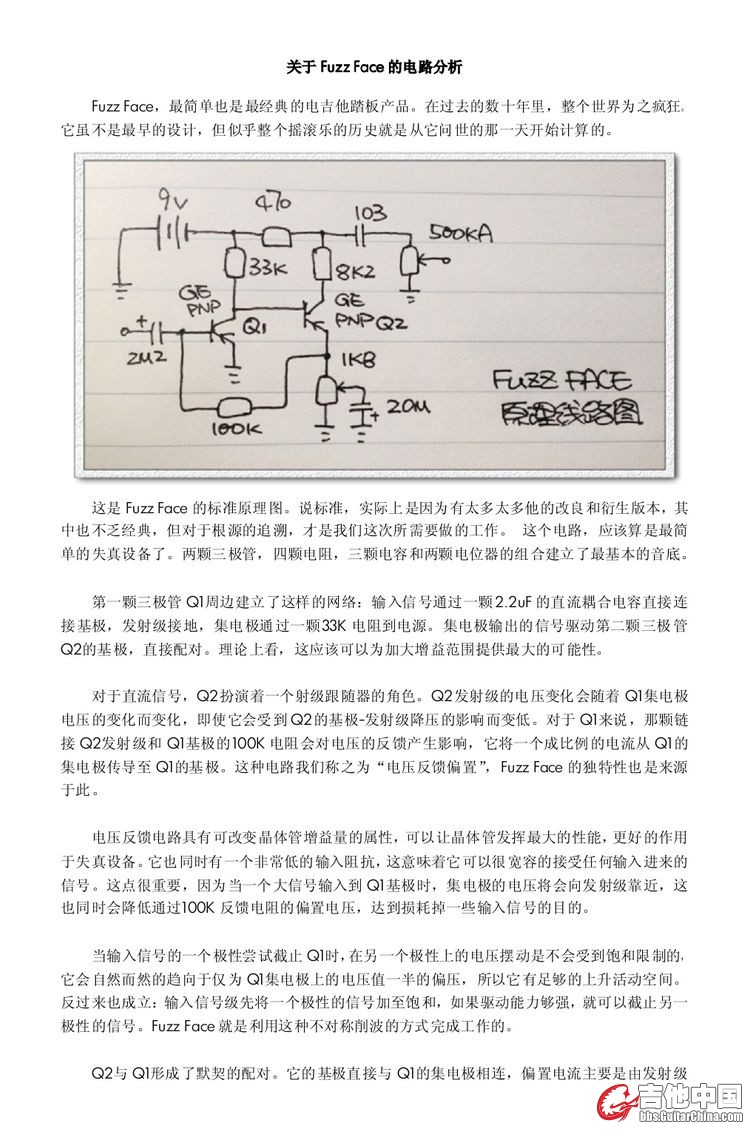 关于 Fuzz Face 的电路分析
Fuzz Face，最简单也是最经典的电吉他踏板产品。在过去的数十年里，整个世界为之疯狂。
它虽不是最早的设计，但似乎整个摇滚乐的历史就是从它问世的那一天开始计算的。
9V
470
103
500KA
33K
8K2
GE
PNP
Q1
GE
PNP Q2
+
2M2
1KB
FUZZ FACE
原理线路图
20M
+
100K
这是 Fuzz Face 的标准原理图。说标准，实际上是因为有太多太多他的改良和衍生版本，其
中也不乏经典，但对于根源的追溯，才是我们这次所需要做的工作。 这个电路，应该算是最简
单的失真设备了。两颗三极管，四颗电阻，三颗电容和两颗电位器的组合建立了最基本的音底。
第一颗三极管 Q1周边建立了这样的网络：输入信号通过一颗 2.2uF 的直流耦合电容直接连
接基极，发射级接地，集电极通过一颗33K 电阻到电源。集电极输出的信号驱动第二颗三极管
Q2的基极，直接配对。理论上看，这应该可以为加大增益范围提供最大的可能性。
对于直流信号，Q2扮演着一个射级跟随器的角色。Q2发射级的电压变化会随着 Q1集电极
电压的变化而变化，即使它会受到Q2的基极-发射级降压的影响而变低。对于 Q1来说，那颗链
接 Q2发射级和 Q1基极的100K 电阻会对电压的反馈产生影响，它将一个成比例的电流从 Q1的
集电极传导至 Q1的基极。这种电路我们称之为“电压反馈偏置”，Fuzz Face 的独特性也是来源
于此。
电压反馈电路具有可改变晶体管增益量的属性，可以让晶体管发挥最大的性能，更好的作用
于失真设备。它也同时有一个非常低的输入阻抗，这意味着它可以很宽容的接受任何输入进来的
信号。这点很重要，因为当一个大信号输入到 Q1基极时，集电极的电压将会向发射级靠近，这
也同时会降低通过100K 反馈电阻的偏置电压，达到损耗掉一些输入信号的目的。
当输入信号的一个极性尝试截止 Q1时，在另一个极性上的电压摆动是不会受到饱和限制的，
它会自然而然的趋向于仅为 Q1集电极上的电压值一半的偏压，所以它有足够的上升活动空间。
反过来也成立：输入信号级先将一个极性的信号加至饱和，如果驱动能力够强，就可以截止另一
极性的信号。Fuzz Face 就是利用这种不对称削波的方式完成工作的。
Q2与 Q1形成了默契的配对。它的基极直接与 Q1的集电极相连，偏置电流主要是由发射级
吉他中国
bbs.GuitarChina.com